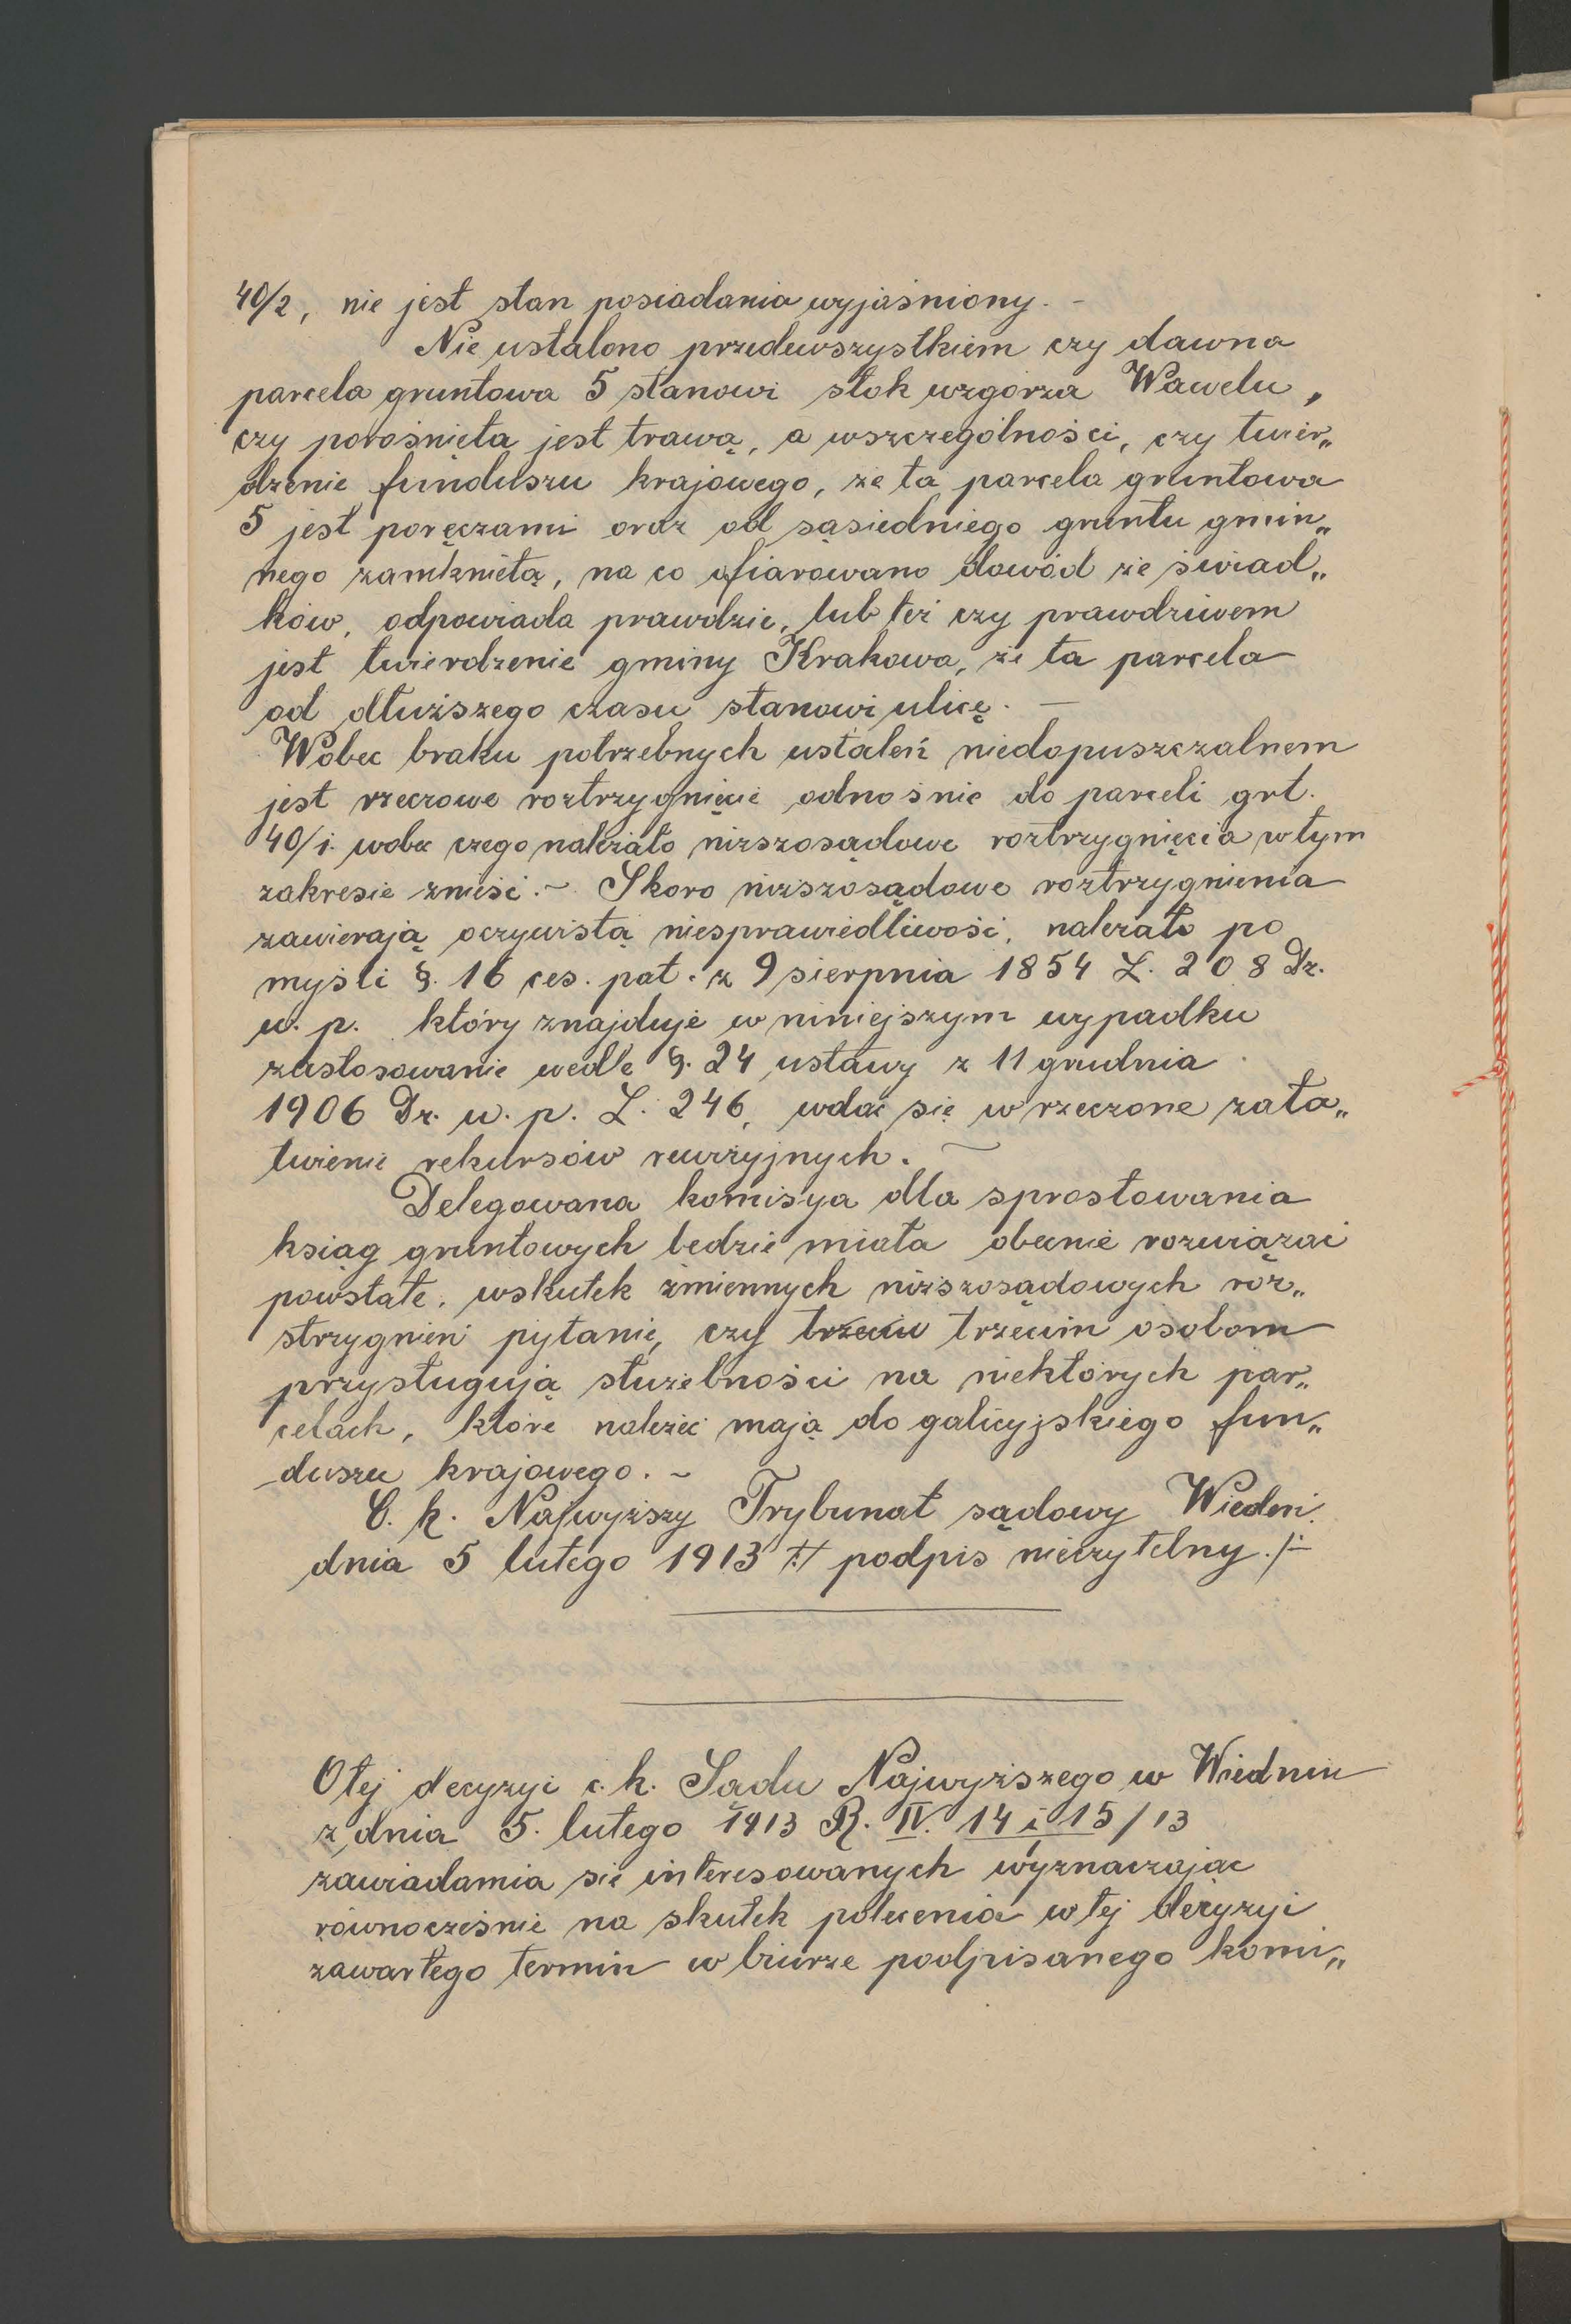 40/2, nie jest stan posiadania wyjaśniony. -
Nie ustalono przedewszystkiem czy dawna
parcela gruntowa 5 stanowi stok wzgórza Wawelu,
czy porośnięta jest trawą, a wszczególności, czy twier„
dzenie funduszu krajowego, że ta parcela gruntowa
5 jest poręczami oraz od sąsiedniego gruntu gmin„
nego zamkniętą, na co ofiarowano dowód ze świad„
ków, odpowiada prawdzie, lub też czy prawdziwem
jest twierdzenie gminy Krakowa, że ta parcela
od dłuższego czasu stanowi ulicę. —
Wobec braku potrzebnych ustaleń niedopuszczalnem
jest rzeczowe roztrzygnięcie odnośnie do parceli grt.
40/1. wobec czego należało niższosądowe roztrzygnięcia w tym
zakresie znieść. ~ Skoro niższosądowe roztrzygnienia
zawierają oczywistą niesprawiedliwość, należało po
myśli §. 16 ces. pat. z 9 sierpnia 1854 L. 208 Dz.
u. p. który znajduje w niniejszym wypadku
zastosowanie wedle §. 24 ustawy z 11 grudnia
1906 Dz. u. p. L. 246, wdać się w rzeczone zała„
twienie rekursów rewizyjnych. ~
Delegowana komisya dla sprostowania
ksiąg gruntowych będzie miała obecnie rozwiązać
powstałe, wskutek zmiennych niższosądowych roz„
strzygnień pytanie, czy trzecim trzecim osobom
przysługują służebności na niektórych par„
celach, które należeć mają do galicyjskiego fun„
duszu krajowego. ~
C. k. Najwyższy Trybunał sądowy Wiedeń
dnia 5 lutego 1913 /:/ podpis nieczytelny ./-
O tej decyzyi c. k. Sądu Najwyższego w Wiedniu
z dnia 5. lutego 1913 R. IV. 14 i 15/13
zawiadamia się interesowanych wyznaczając
równocześnie na skutek polecenia w tej decyzyi
zawartego termin w biurze podpisanego komi„